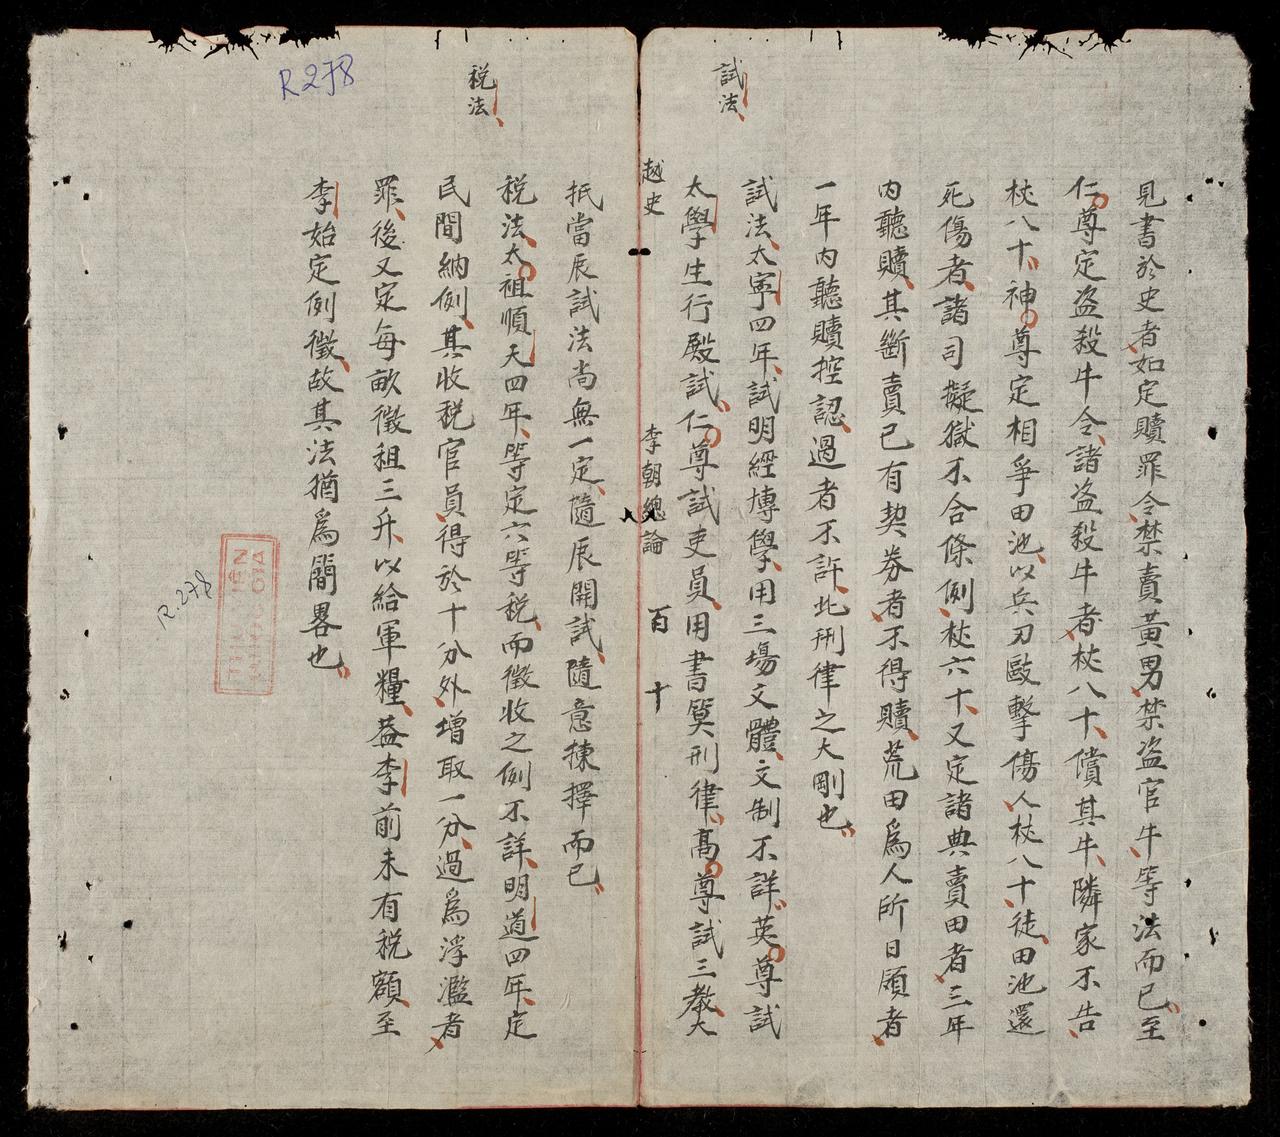 試法
見書於史者如定贖罪令禁賣黃男禁盜官牛等法而已至
仁尊定盜殺牛令諸盜殺牛者杖八十償其牛隣家不告
杖八十神尊定相爭田池以兵刃毆擊傷人杖八十徒田池還
死傷者諸司擬獄不合條例杖六十又定諸典賣田者三年
內聽贖其斷賣已有契券者不得贖荒田爲人所日𢌞者
一年內聽贖控認過者不許此刑律之大剛也
試法太寧四年試明經博學用三場文體文制不詳英尊試
太學生行殿試仁尊試吏員用書筭刑律高尊試三教大
越史 李朝總論 百十
稅法
抵當辰試法尚無一定隨辰開試隨意揀擇而已
稅法太祖順天四年等定六等稅而徵收之例不詳明道四年定
民間納例其收稅官員得於十分外增取一分過爲浮濫者
罪後又定每畝徵租三升以給軍糧葢李前未有稅額至
李始定例徵故其法猶爲簡畧也
R278
R.278